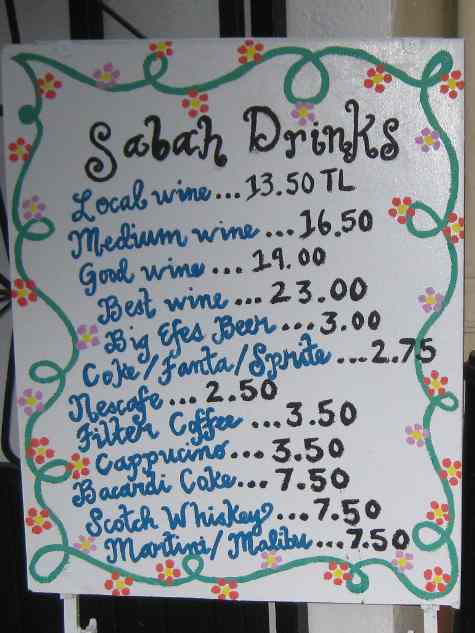 Sabah Drinks
Local wine...13.50 TL
Medium wine...16.50
Good wine...19.00
Best wine...23.00
Big Efes Beer...3.00
Coke/Fanta/Sprite...2.75
Nescafe...2.50
Filter Coffee...3.50
Cappucino...3.50
Bacardi Coke...7.50
Scotch Whiskey...7.50
Martini/Malibu...7.50